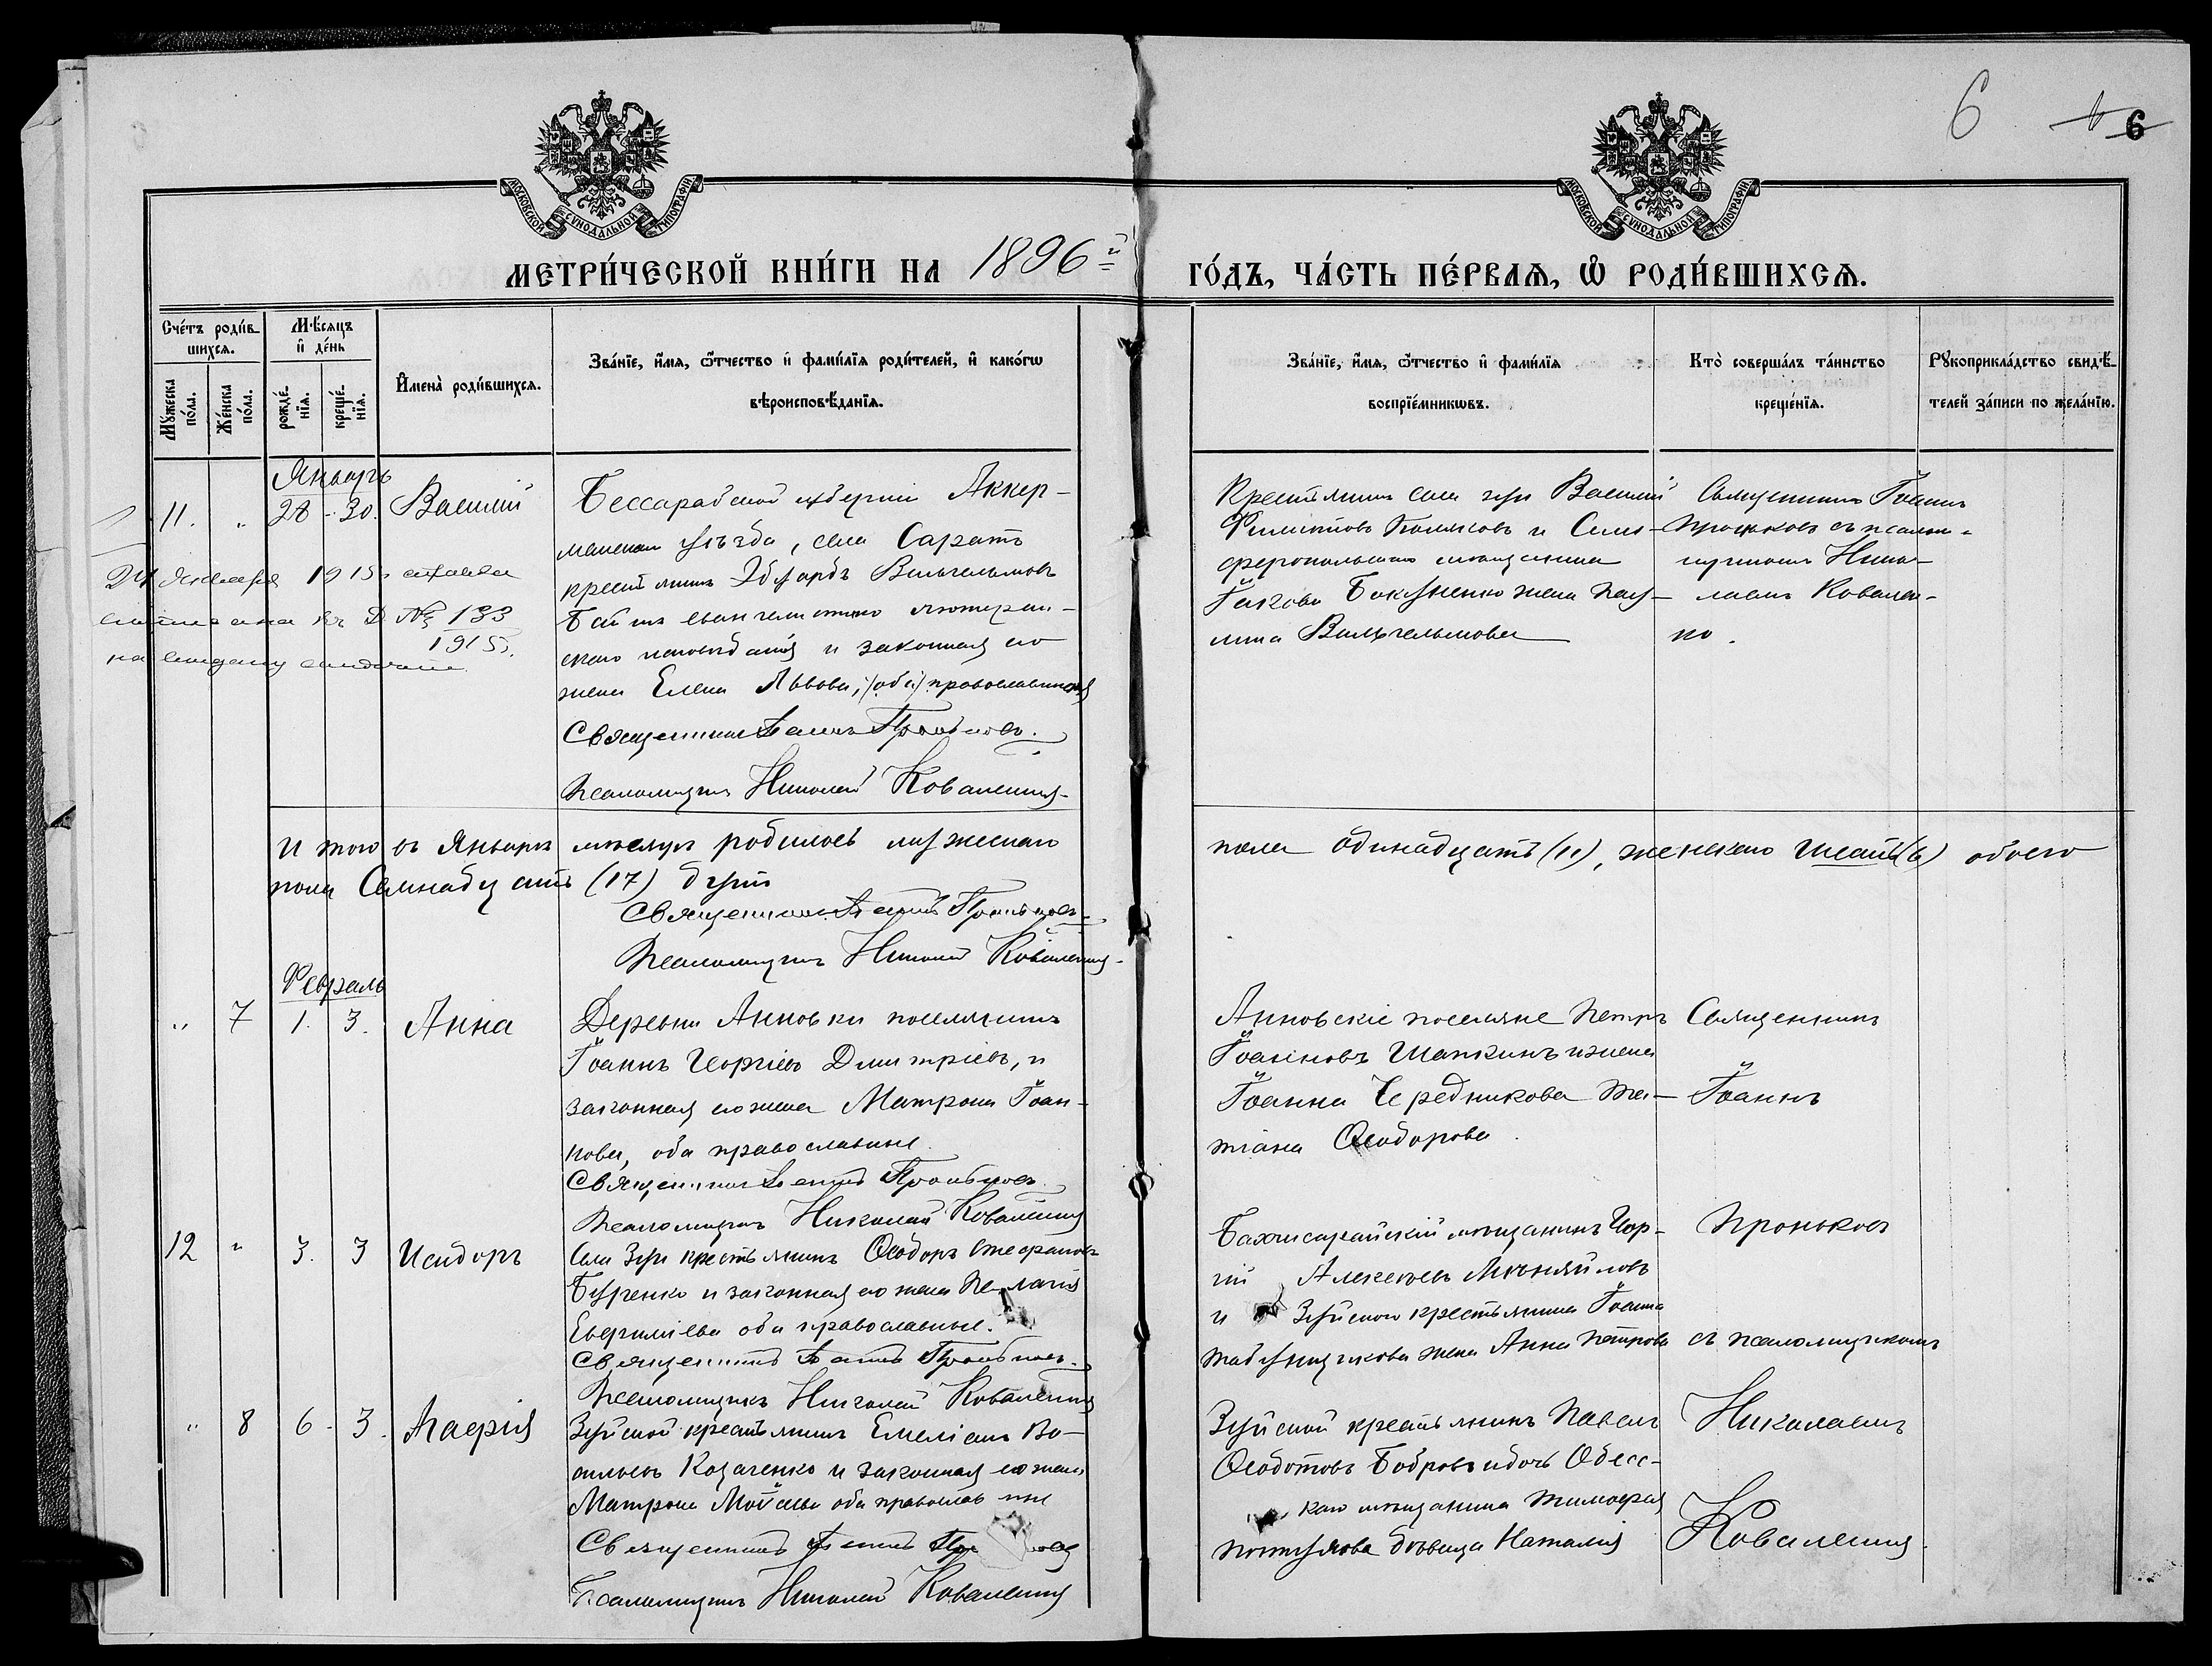 6
6
МОСКОВСКОЙ СУНОДАЛЬНОЙ ТИПОГРАФІИ
МОСКОВСКОЙ СУНОДАЛЬНОЙ ТИПОГРАФІИ
МЕТРИ́ЧЕСКОЙ КНИ́ГИ НА 1896й ГО́ДЪ, ЧА́СТЬ ПЕ́РВАѦ, Ѡ РОДИ́ВШИХСѦ.
Сче́тъ роди́в-
шихсѧ.
Мꙋжеска
по́ла.
Же́нска
по́ла.
Мѣ́сѧцъ
и҆ де́нь
рожде́-
нїѧ.
креще́-
нїѧ.
И҆мена̀ роди́вшихсѧ.
Зва́нїе, и҆́мѧ, ѻ҆́тчество и҆ фами́лїѧ роди́телей, и҆ како́гѡ
вѣроисповѣ́данїѧ.
Зва́нїе, и҆́мѧ, ѻ҆́тчество и҆ фами́лїѧ
воспрїе́мникѡвъ.
Кто̀ соверша́лъ та́инство
креще́нїѧ.
Рꙋкоприкла́дство свидѣ́-
телей за́писи по жела́нїю.
Январь
11. „ 28 - 30. Василій
Бессарабской губерніи Аккер-
манскаго уѣзда, села Саратъ
крестьянинъ Эдуардъ Вильгельмовъ
евангелическо лютеран-
скаго исповѣданія и законная его
жена Елена Львова, православная
Священникъ Іоаннъ Проньковъ.
Псаломщикъ Николай Коваленко
24 Января 1915.
къ Д № 133
1915.
на выдачу
Крестьянинъ села Зуи Василій
Филиповъ Поляковъ и Сим-
феропольскаго мѣщанина
Іакова жена Пау-
лина Вильгельмова
Священникъ Іоаннъ
Проньковъ съ псалом-
щикомъ Нико-
лаемъ Ковален-
ко.
Итого въ Январѣ мѣсяцѣ родилось мужескаго пола одинадцать (11), женскаго шесть (6) обоего
пола Семнадцать (17) душъ
Священникъ Іоаннъ Проньковъ
Псаломщикъ Николай Коваленко
Февраль
„ 7 1. 3. Анна
Деревни Анновки поселянинъ
Іоаннъ Георгіевъ Дмитріевъ, и
законная его жена Матрона Іоан-
нова, оба православные.
Священникъ Іоаннъ Проньковъ
Псаломщикъ Николай Коваленко
Анновскіе поселяне Петръ
Іоанновъ Шапкинъ и жена
Іоанна Чередникова Та-
тіана Ѳеодорова.
Священникъ
Іоаннъ
12 „ 3. 3 Исидоръ
Села Зуи крестьянинъ Ѳеодоръ Стефановъ
и законная его жена Пелагія
оба православные.
Священникъ Іоаннъ Проньковъ
Псаломщикъ Николай Коваленко
Бахчисарайскій мѣщанинъ Геор-
гій Алексѣевъ
и Зуйскаго крестьянина Іоанна
жена Анна Петрова
Проньковъ
съ псаломщикомъ
„ 8 6 - 3. Агафія
Зуйской крестьянинъ Емеліанъ Ва-
сильевъ Козаченко и законная его жена
Матрона Моисеева оба православные
Священникъ Іоаннъ
Псаломщикъ Николай Коваленко
Зуйской крестьянинъ Павелъ
Ѳеодотовъ Бобровъ и дочь Одесс-
каго мѣщанина Тимофея
дѣвица Наталія
Николаемъ
Коваленко